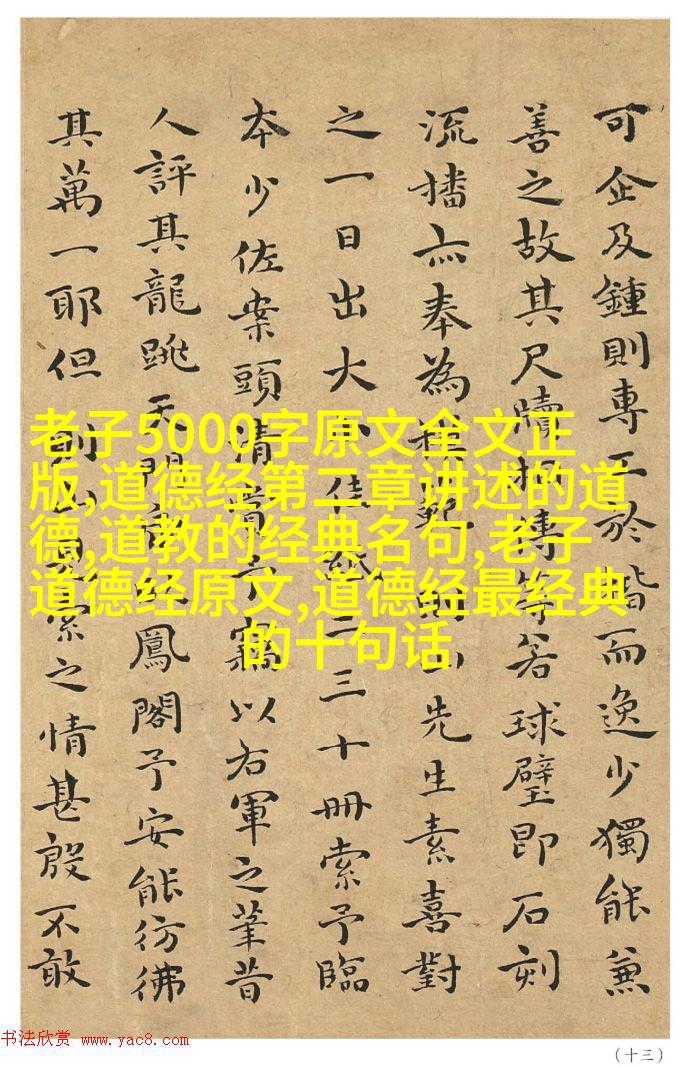 可企及鍾則專工於楷而逸少獨能兼
善之故其尺牘相傳等若球璧即石刻
流播亦奉為程範山先生素喜對
之一日出大小佳紙二三十冊索予臨
本少佐案頭清賞予竊以右軍之筆昔
人評其龍跳天門虎臥鳳閣予安能彷彿
其萬一耶但山見索之情甚殷不敢
老子5000字原文全文正
版,道德经第二章讲述的道
德,道教的经典名句,老子
道德经原文,道德经最经典
的十句话
书法欣赏 www.yac8.com
(十三)